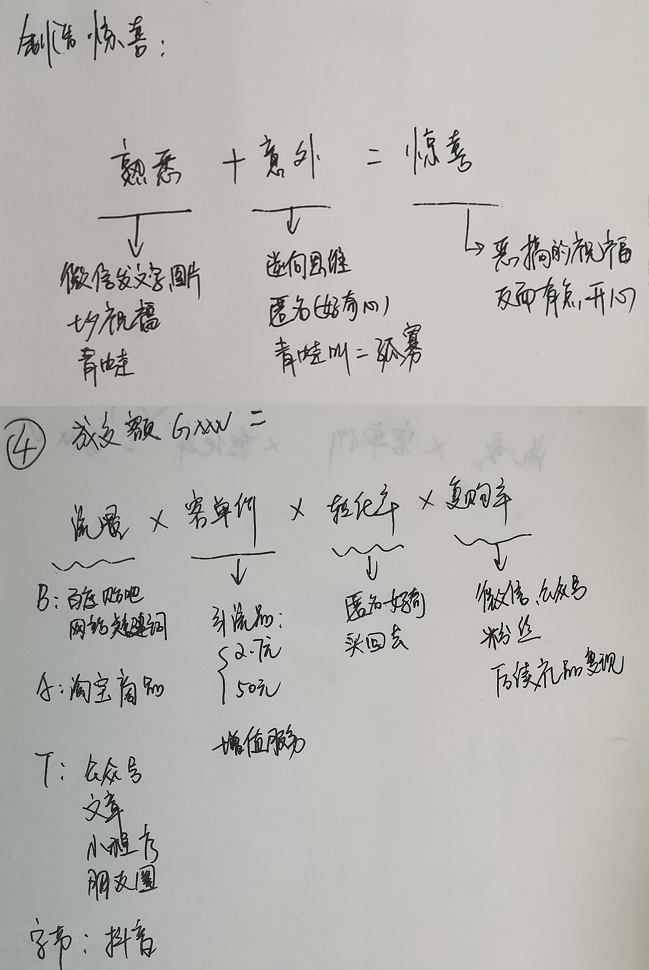 制造惊喜：
熟悉 + 意外 = 惊喜
微信发文字,图片
七夕祝福
青蛙
逆向思维
匿名(好奇心)
青蛙叫=孤寡
恶搞的祝福
反而有点,开心
④ 成交额 =
流量 × 客单价 × 转化率 × 复购率
B: 百度贴吧
网站关键词
A: 淘宝商品
T: 公众号
文章
小程序
朋友圈
字节: 抖音
引流品:
2.7元
50元
增值服务
匿名好奇
买回去
微信,公众号
粉丝
后续产品变现